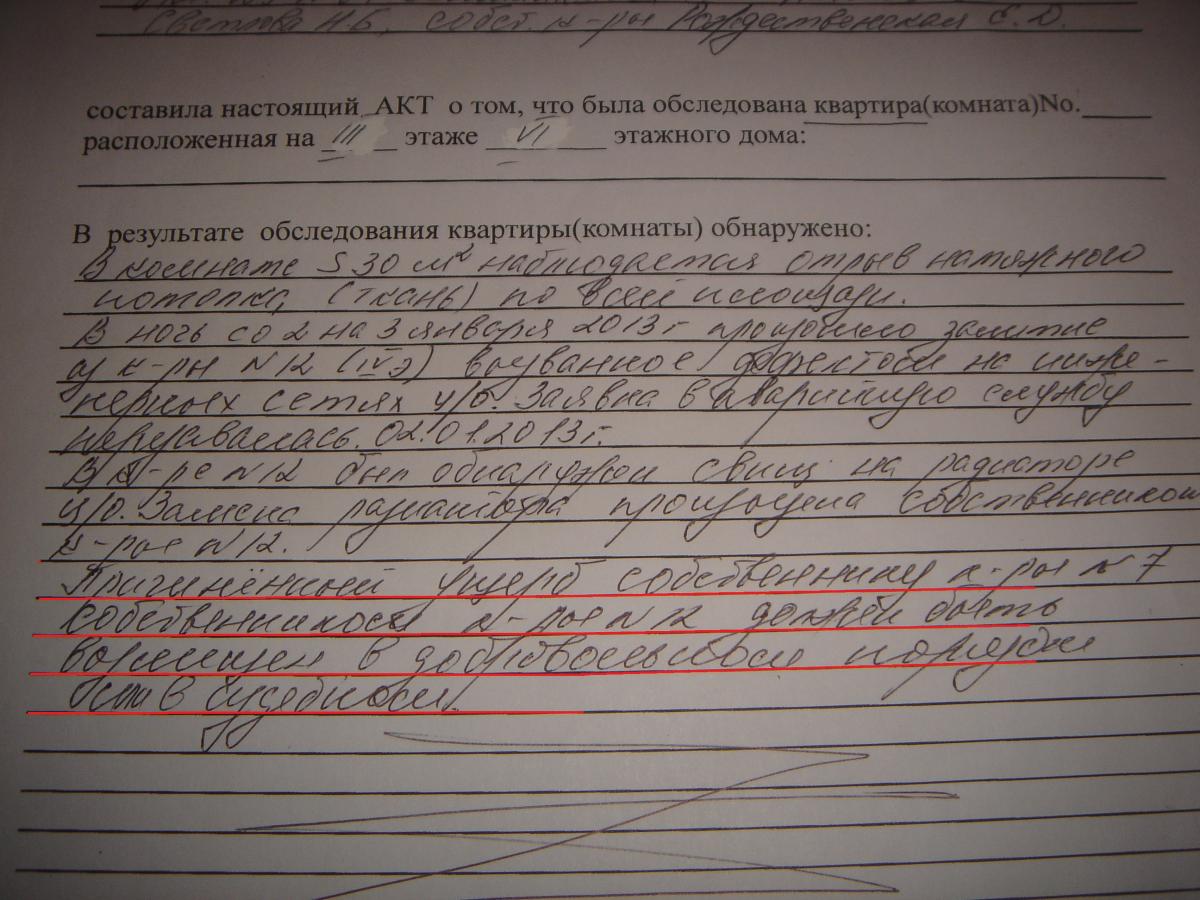 Светлова Н.Б, собст. к-ры Рождественская Е.Д.
составила настоящий АКТ о том, что была обследована квартира(комната)No.
расположенная на III этаже VI этажного дома:
В результате обследования квартиры(комнаты) обнаружено:
В комнате S 30 м² наблюдается отрыв натяжного
потолка, (ткань) по всей площади.
В ночь со 2 на 3 января 2013г произошло залитие
из к-ры N12 (IVэ) вызванное дефектом на инже-
нерных сетях ц/о. Заявка в аварийную службу
передавалась 02.01.2013г.
В к-ре N12 был обнаружен свищ на радиаторе
ц/о. Замена радиатора произведена собственником
к-ры N12.
Причинённый ущерб собственнику к-ры N7
собственником к-ры N12 должен быть
возмещен в добровольном порядке
или в судебном.